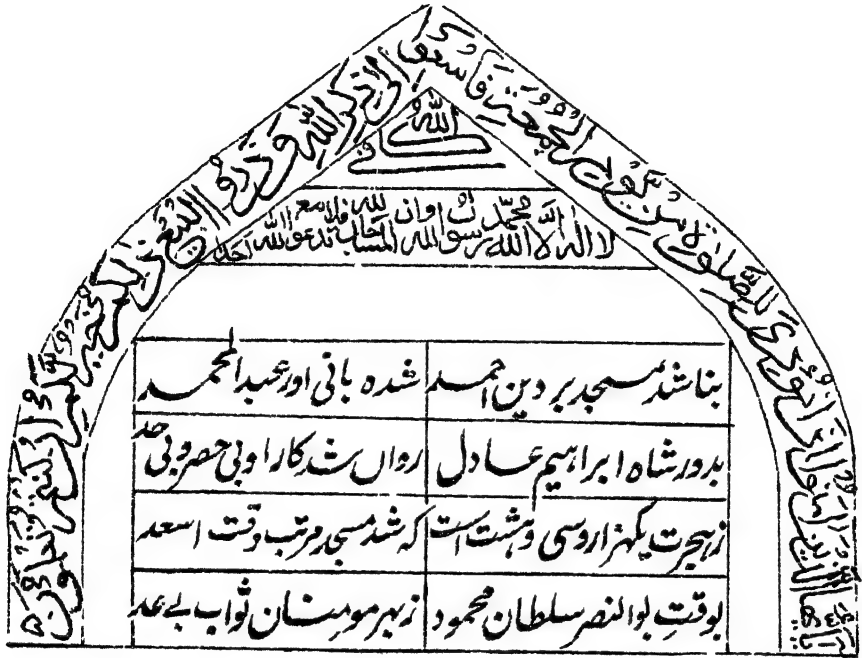 يا ايها الذين امنوا اذا نودي للصلوة من يوم الجمعة فاسعوا الى ذكر الله وذروا البيع ذلكم خير لكم ان كنتم تعلمون
الله كافى
لا اله الا الله محمد رسول الله وان المساجد لله فلا تدعوا مع الله احدا
بنا شد مسجد بر دین احمد شده بانی اور عبد المحمد
بدور شاه ابراہیم عادل رواں شد کار او بی حصر و بی حد
ز ہجرت یکہزار و سی و ہشت است که شد مسجد مرتب وقت اسعد
بوقتِ بو النصر سلطان محمود ز بہر مومنان ثواب بے عد